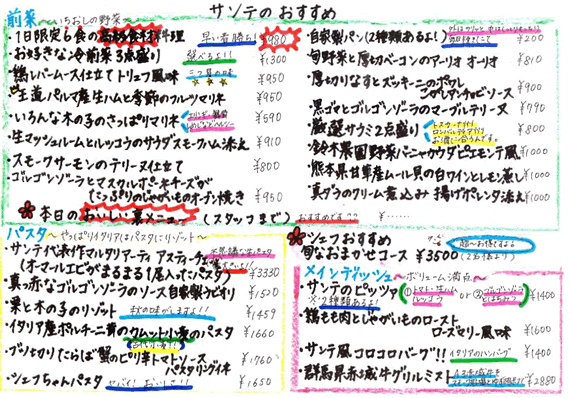 サンテのおすすめ
前菜 〜いちおしの野菜〜
・1日限定6食の高級食材料理 早い者勝ち! ¥980
・お好きな冷前菜3点盛り 選べるよ!! ¥1300
・鶏レバームース仕立て トリュフ風味 ¥950
・王道パルマ産生ハムと季節のフルーツマリネ ¥950
・いろんな木の子のさっぱりマリネ ¥690
・生マッシュルームとルッコラのサラダスモークハム添え ¥910
・スモークサーモンのテリーヌ仕立て ¥800
・ゴルゴンゾーラとマスカルポーネチーズが
たっぷりのじゃがいものオーブン焼き ¥950
本日のおいしい裏メニュー (スタッフまで) おすすめです?? ¥……
・自家製パン(2種類あるよ!) ¥200
・旬野菜と厚切りベーコンのアーリオ オーリオ ¥810
・厚切りなすとズッキーニのポワレ
ソース ¥900
・黒ゴマとゴルゴンゾーラのマーブルテリーヌ ¥790
・厳選サラミ2点盛り ¥800
・鈴木農園野菜バーニャカウダピエモンテ風 ¥1000
・熊本県甘草産ムール貝の白ワインとレモン蒸し ¥1000
・真ダラのクリーム煮込み 揚げポレンタ添え ¥1000
パスタ 〜やっぱりイタリアはパスタにリゾット〜
・サンテ代表作マルタリアーティ アスティーチェ
(オマールエビがまるまる1尾入ったパスタ) ¥3330
・真っ赤なゴルゴンゾーラのソース自家製ラビオリ ¥1520
・栗と木の子のリゾット 秋の味がしますよ!! ¥1459
・イタリア産ポルチーニ茸のクムット小麦のパスタ ¥1660
古代小麦!!
・ブツ切りたらば蟹のピリ辛トマトソース
パスタリングイネ ¥1960
・シェフちゃんパスタ ヤバイ! おいしい!! ¥1650
シェフおすすめ
旬なおまかせコース ¥3500 (2名様より)
超〜お得ですよ
メインディッシュ 〜ボリューム満点〜
・サンテのピッツァ
※2種類あるよ! ①トマト・生ハム ルッコラ or ②ゴルゴンゾーラ とはちみつ ¥1400
・鶏もも肉とじゃがいものロースト
ローズマリー風味 ¥1600
・サンテ風コロコロバーグ!! イタリアのハンバーグ ¥1400
・群馬県赤城牛グリルミスト ¥2880